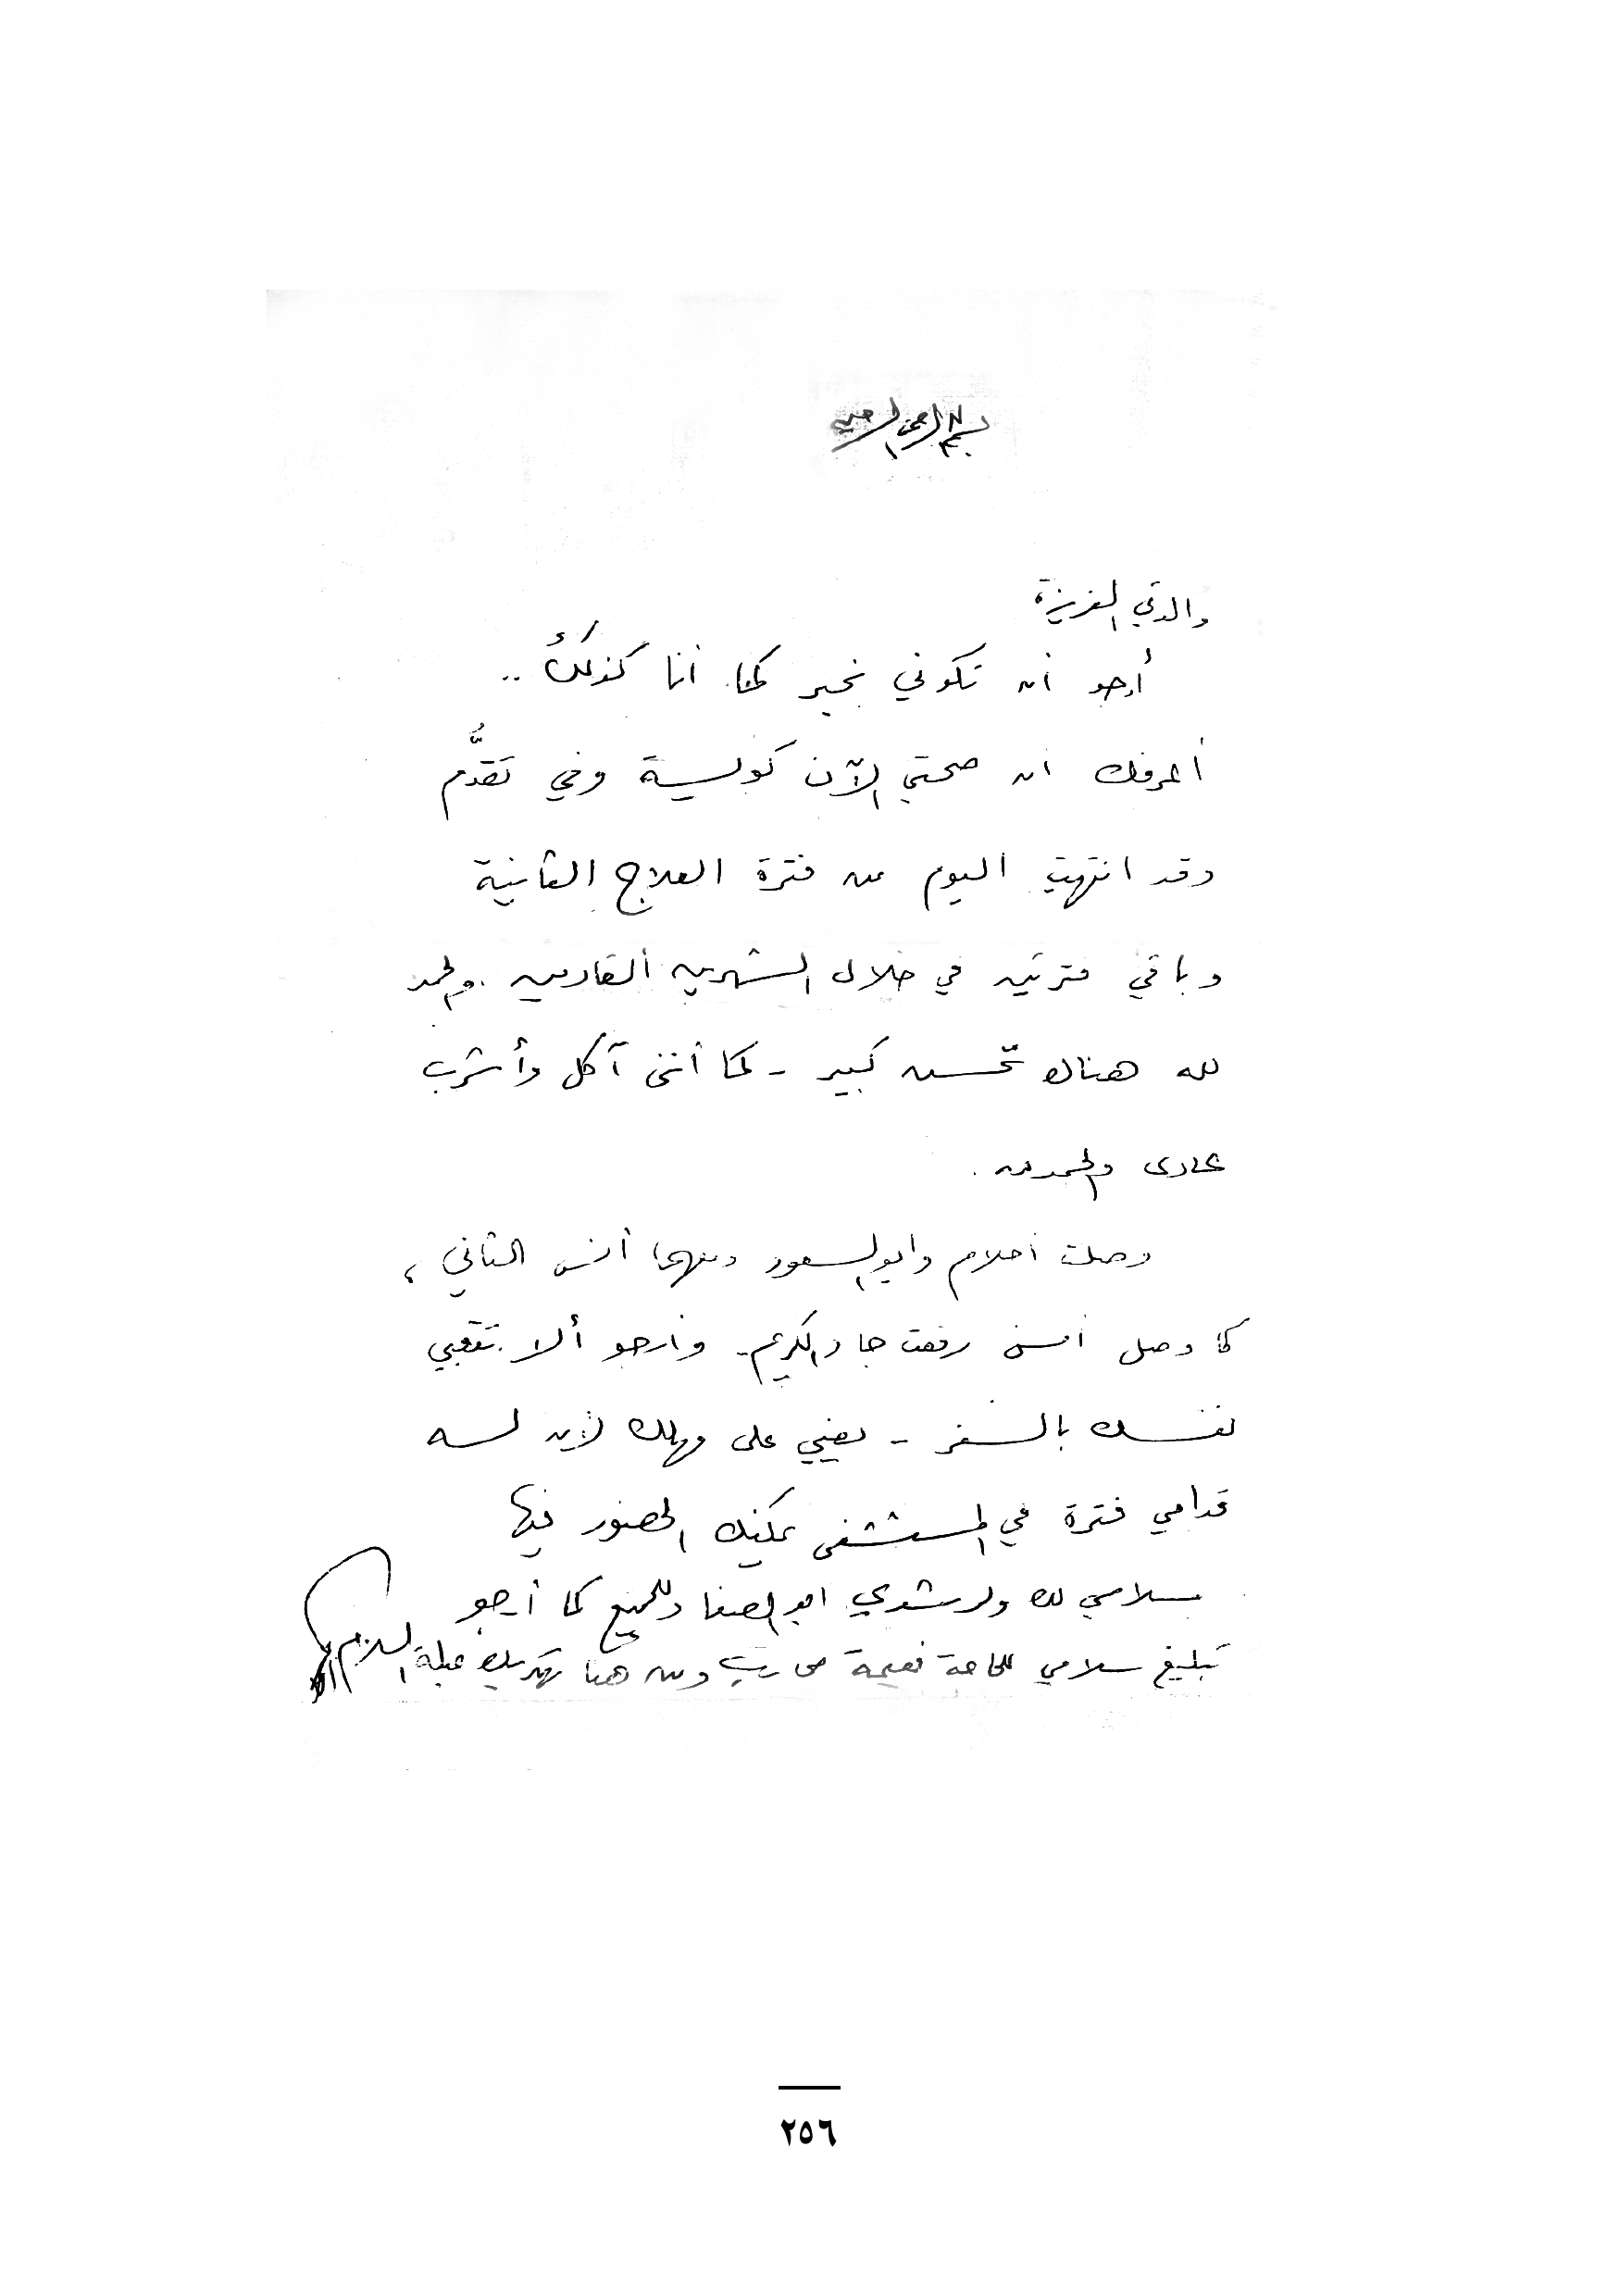 بسم الله الرحمن الرحيم
والدتي العزيزة
أرجو أن تكوني بخير كما أنا كذلك ..
أعرفك أن صحتي الآن كويسة وفي تقدُّم
وقد انتهت اليوم من فترة العلاج الثانية
وباقي فترتين في خلال الشهرين القادمين . والحمد
لله هناك تحسن كبير - كما أنني آكل وأشرب
عادى والحمد لله .
وصلت أحلام وابو السعود ومعهما أنس الثاني ،
كما وصل أمس رفعت جاد الكريم - وأرجو ألا تتعبي
نفسك بالسفر - يعني على مهلك لأن لسه
قدامي فترة في المستشفى يمكنك الحضور فيها
سلامي لك ولرشدي ابو الصفا وللجميع كما أرجو
تبليغ سلامي للحاجة نعيمة ومن هنا تهديك عبلة السلام
٢٥٦